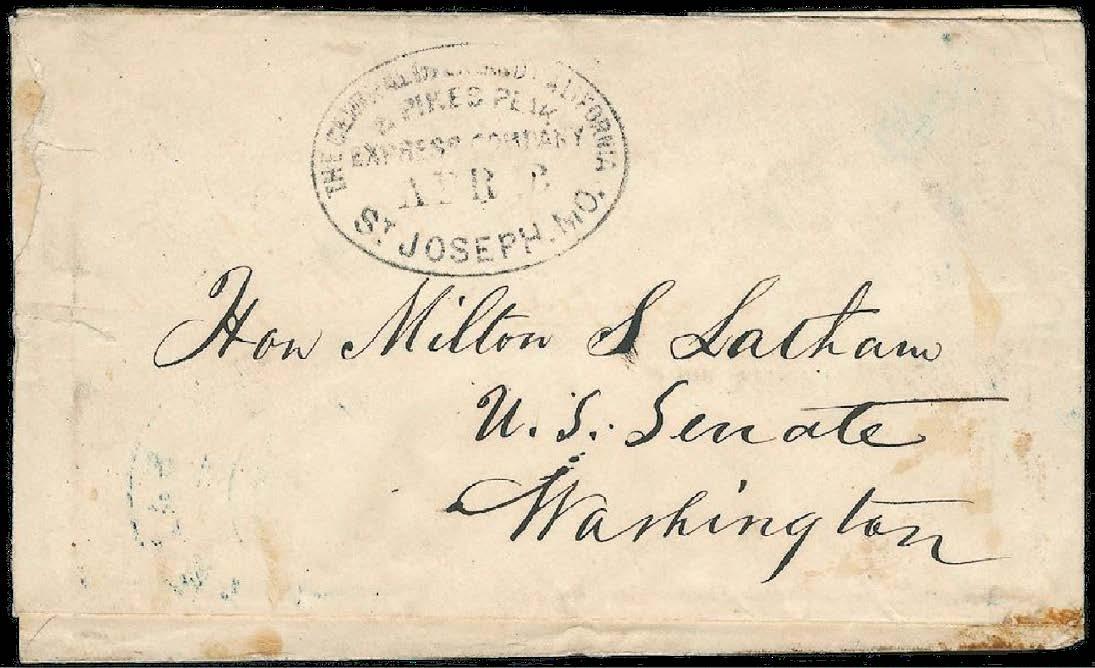 THE CENTRAL OVERLAND CALIFORNIA
& PIKES PEAK
EXPRESS COMPANY
APR
ST. JOSEPH. MO.
Hon Milton S Latham
U.S. Senate
Washington